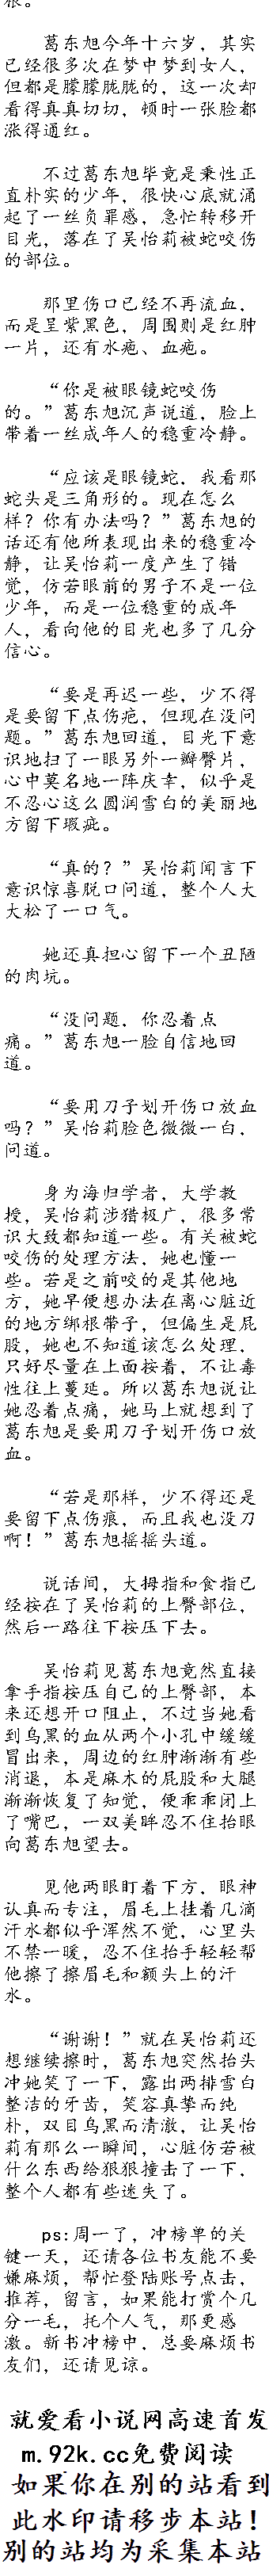 葛东旭今年十六岁，其实
已经很多次在梦中梦到女人，
但都是朦朦胧胧的，这一次却
看得真真切切，顿时一张脸都
涨得通红。
不过葛东旭毕竟是秉性正
直朴实的少年，很快心底就涌
起了一丝负罪感，急忙转移开
目光，落在了吴怡莉被蛇咬伤
的部位。
那里伤口已经不再流血，
而是呈紫黑色，周围则是红肿
一片，还有水疱、血疱。
“你是被眼镜蛇咬伤
的。”葛东旭沉声说道，脸上
带着一丝成年人的稳重冷静。
“应该是眼镜蛇，我看那
蛇头是三角形的。现在怎么
样？你有办法吗？”葛东旭的
话还有他所表现出来的稳重冷
静，让吴怡莉一度产生了错
觉，仿若眼前的男子不是一位
少年，而是一位稳重的成年
人，看向他的目光也多了几分
信心。
“要是再迟一些，少不得
是要留下点伤疤，但现在没问
题。”葛东旭回道，目光下意
识地扫了一眼另外一瓣臀片，
心中莫名地一阵庆幸，似乎是
不忍心这么圆润雪白的美丽地
方留下瑕疵。
“真的？”吴怡莉闻言下
意识惊喜脱口问道，整个人大
大松了一口气。
她还真担心留下一个丑陋
的肉坑。
“没问题，你忍着点
痛。”葛东旭一脸自信地回
道。
“要用刀子划开伤口放血
吗？”吴怡莉脸色微微一白，
问道。
身为海归学者，大学教
授，吴怡莉涉猎极广，很多常
识大致都知道一些。有关被蛇
咬伤的处理方法，她也懂一
些。若是之前咬的是其他地
方，她早便想办法在离心脏近
的地方绑根带子，但偏生是屁
股，她也不知道该怎么处理，
只好尽量在上面按着，不让毒
性往上蔓延。所以葛东旭说让
她忍着点痛，她马上就想到了
葛东旭是要用刀子划开伤口放
血。
“若是那样，少不得还是
要留下点伤痕，而且我也没刀
啊！”葛东旭摇摇头道。
说话间，大拇指和食指已
经按在了吴怡莉的上臀部位，
然后一路往下按压下去。
吴怡莉见葛东旭竟然直接
拿手指按压自己的上臀部，本
来还想开口阻止，不过当她看
到乌黑的血从两个小孔中缓缓
冒出来，周边的红肿渐渐有些
消退，本是麻木的屁股和大腿
渐渐恢复了知觉，便乖乖闭上
了嘴巴，一双美眸忍不住抬眼
向葛东旭望去。
见他两眼盯着下方，眼神
认真而专注，眉毛上挂着几滴
汗水都似乎浑然不觉，心里头
不禁一暖，忍不住抬手轻轻帮
他擦了擦眉毛和额头上的汗
水。
“谢谢！”就在吴怡莉还
想继续擦时，葛东旭突然抬头
冲她笑了一下，露出两排雪白
整洁的牙齿，笑容真挚而纯
朴，双目乌黑而清澈，让吴怡
莉有那么一瞬间，心脏仿若被
什么东西给狠狠撞击了一下，
整个人都有些迷失了。
ps:周一了，冲榜单的关
键一天，还请各位书友能不要
嫌麻烦，帮忙登陆账号点击，
推荐，留言，如果能打赏个几
分一毛，托个人气，那更感
激。新书冲榜中，总要麻烦书
友们，还请见谅。
就爱看小说网高速首发
m.92k.cc免费阅读
如果你在别的站看到
此水印请移步本站！
别的站均为采集本站